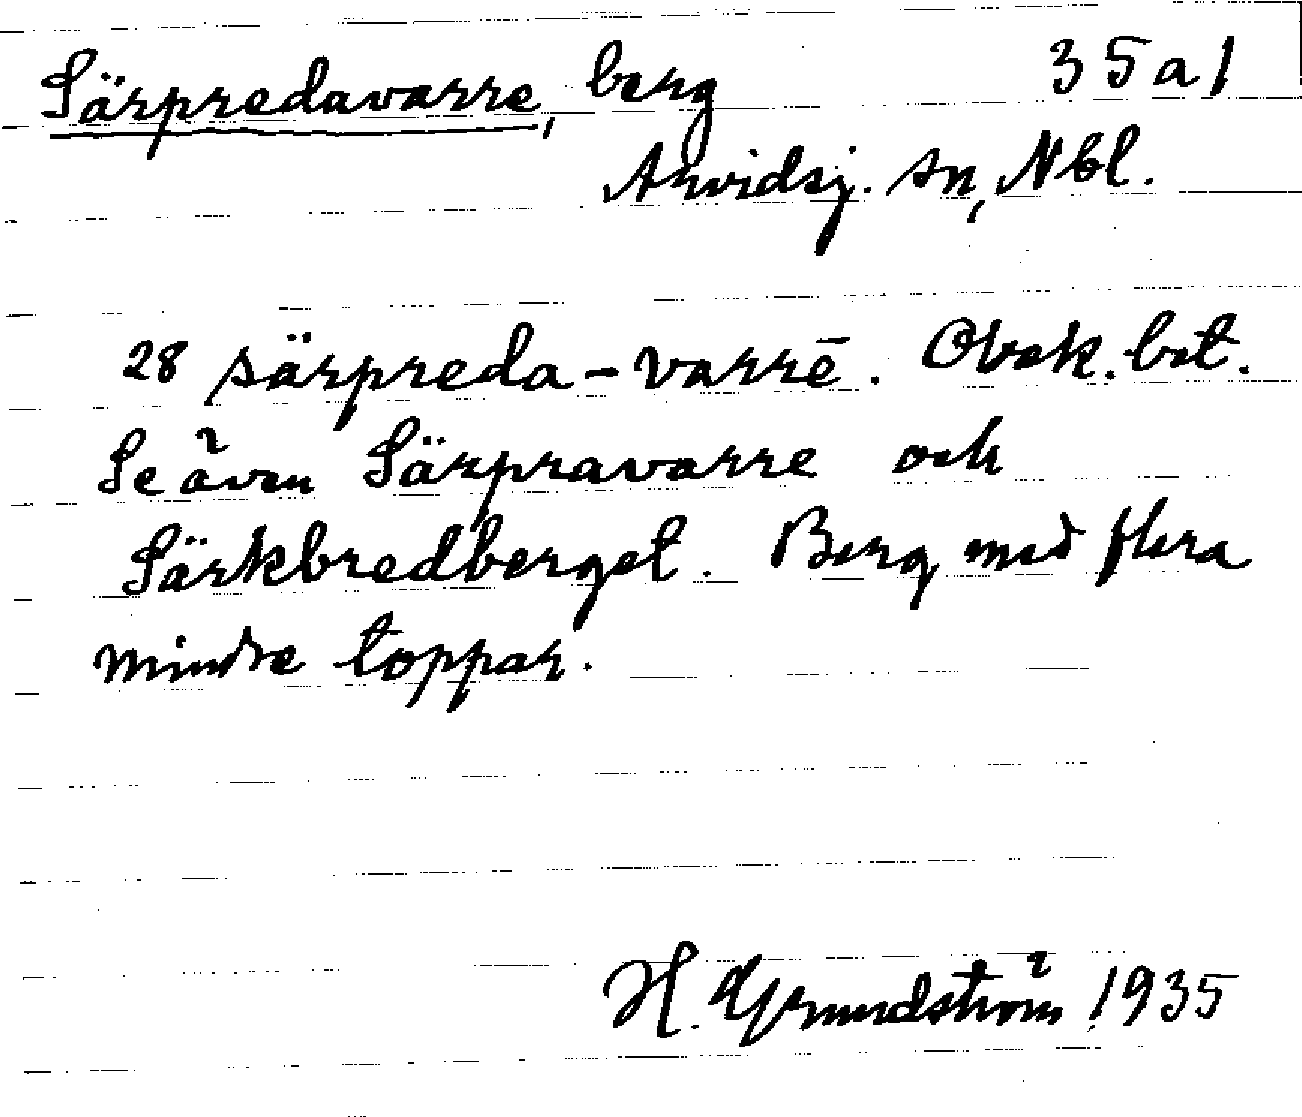 Särpredavarre, berg 35a1
Arvidsj. sn, Nbl.
28 särpreda-varrē. Obek. bet.
Se även Särpravarre och
Särkbredberget. Berg med flera
mindre toppar.
H. Grundström 1935